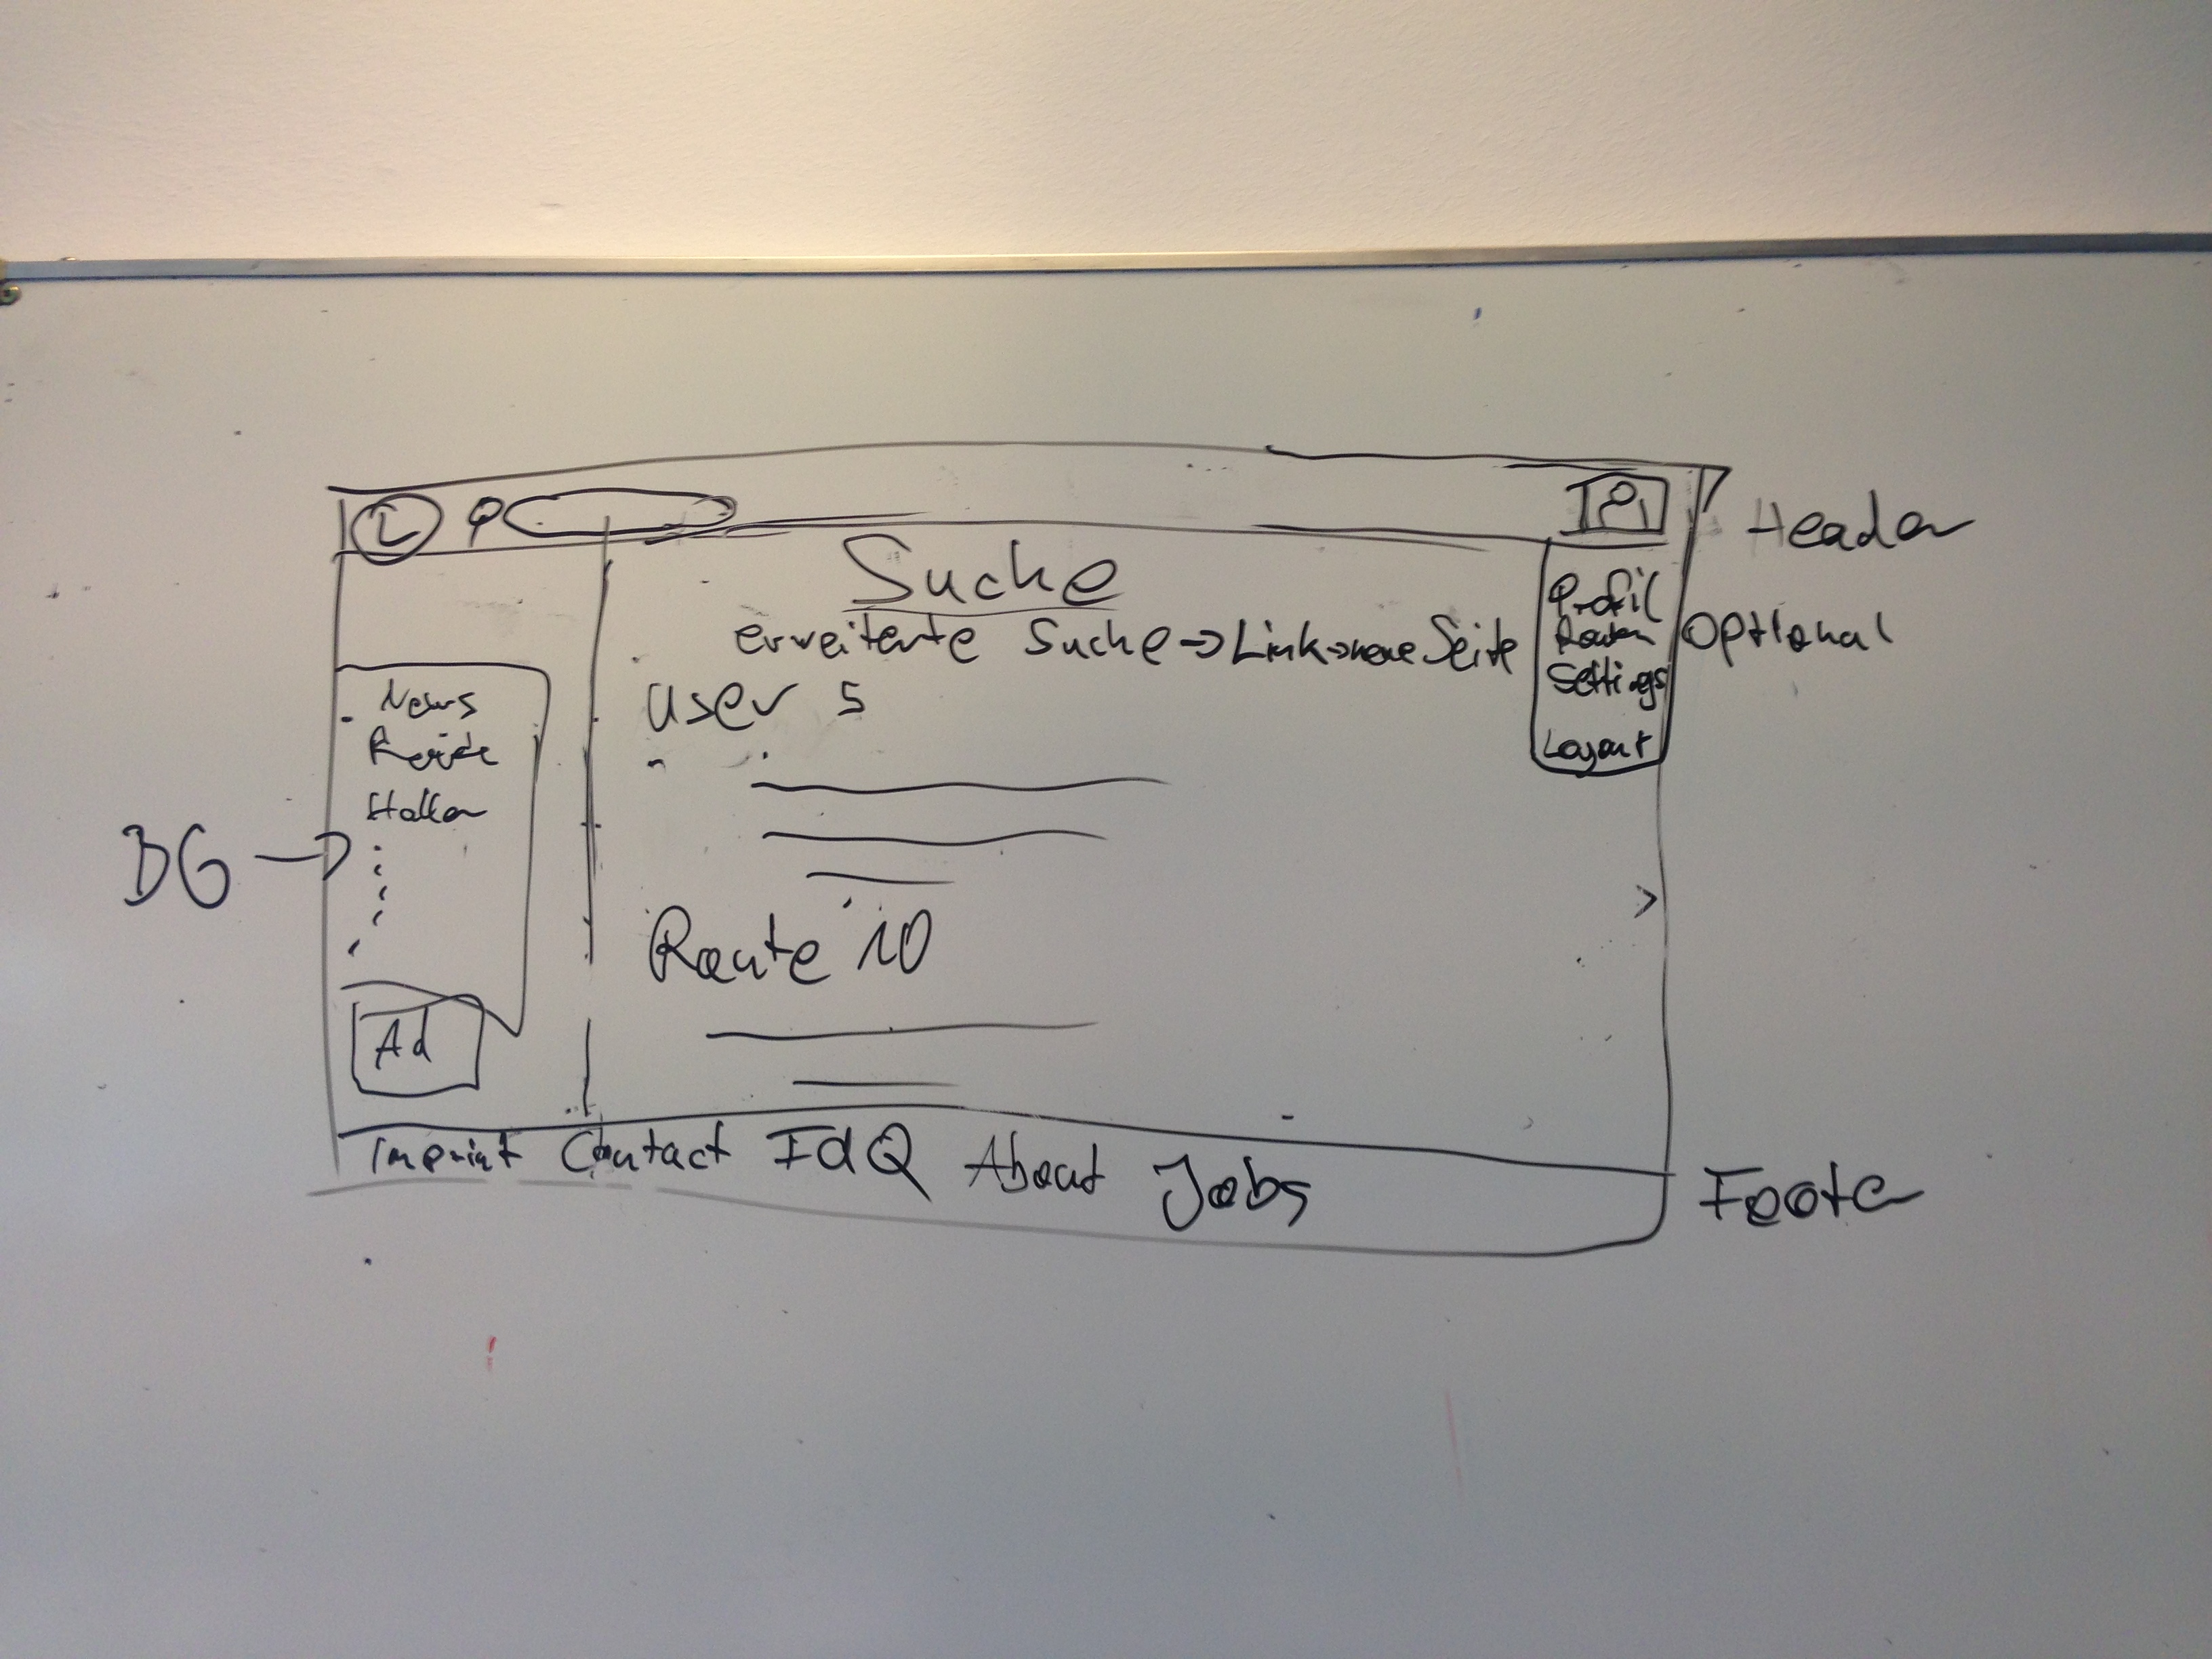 L
Header
Suche
erweiterte Suche → Link → neue Seite
Profil
Routen
Settings
Logout
Optional
User 5
News
BG →
Route 10
Ad
Imprint Contact FAQ About Jobs
Footer